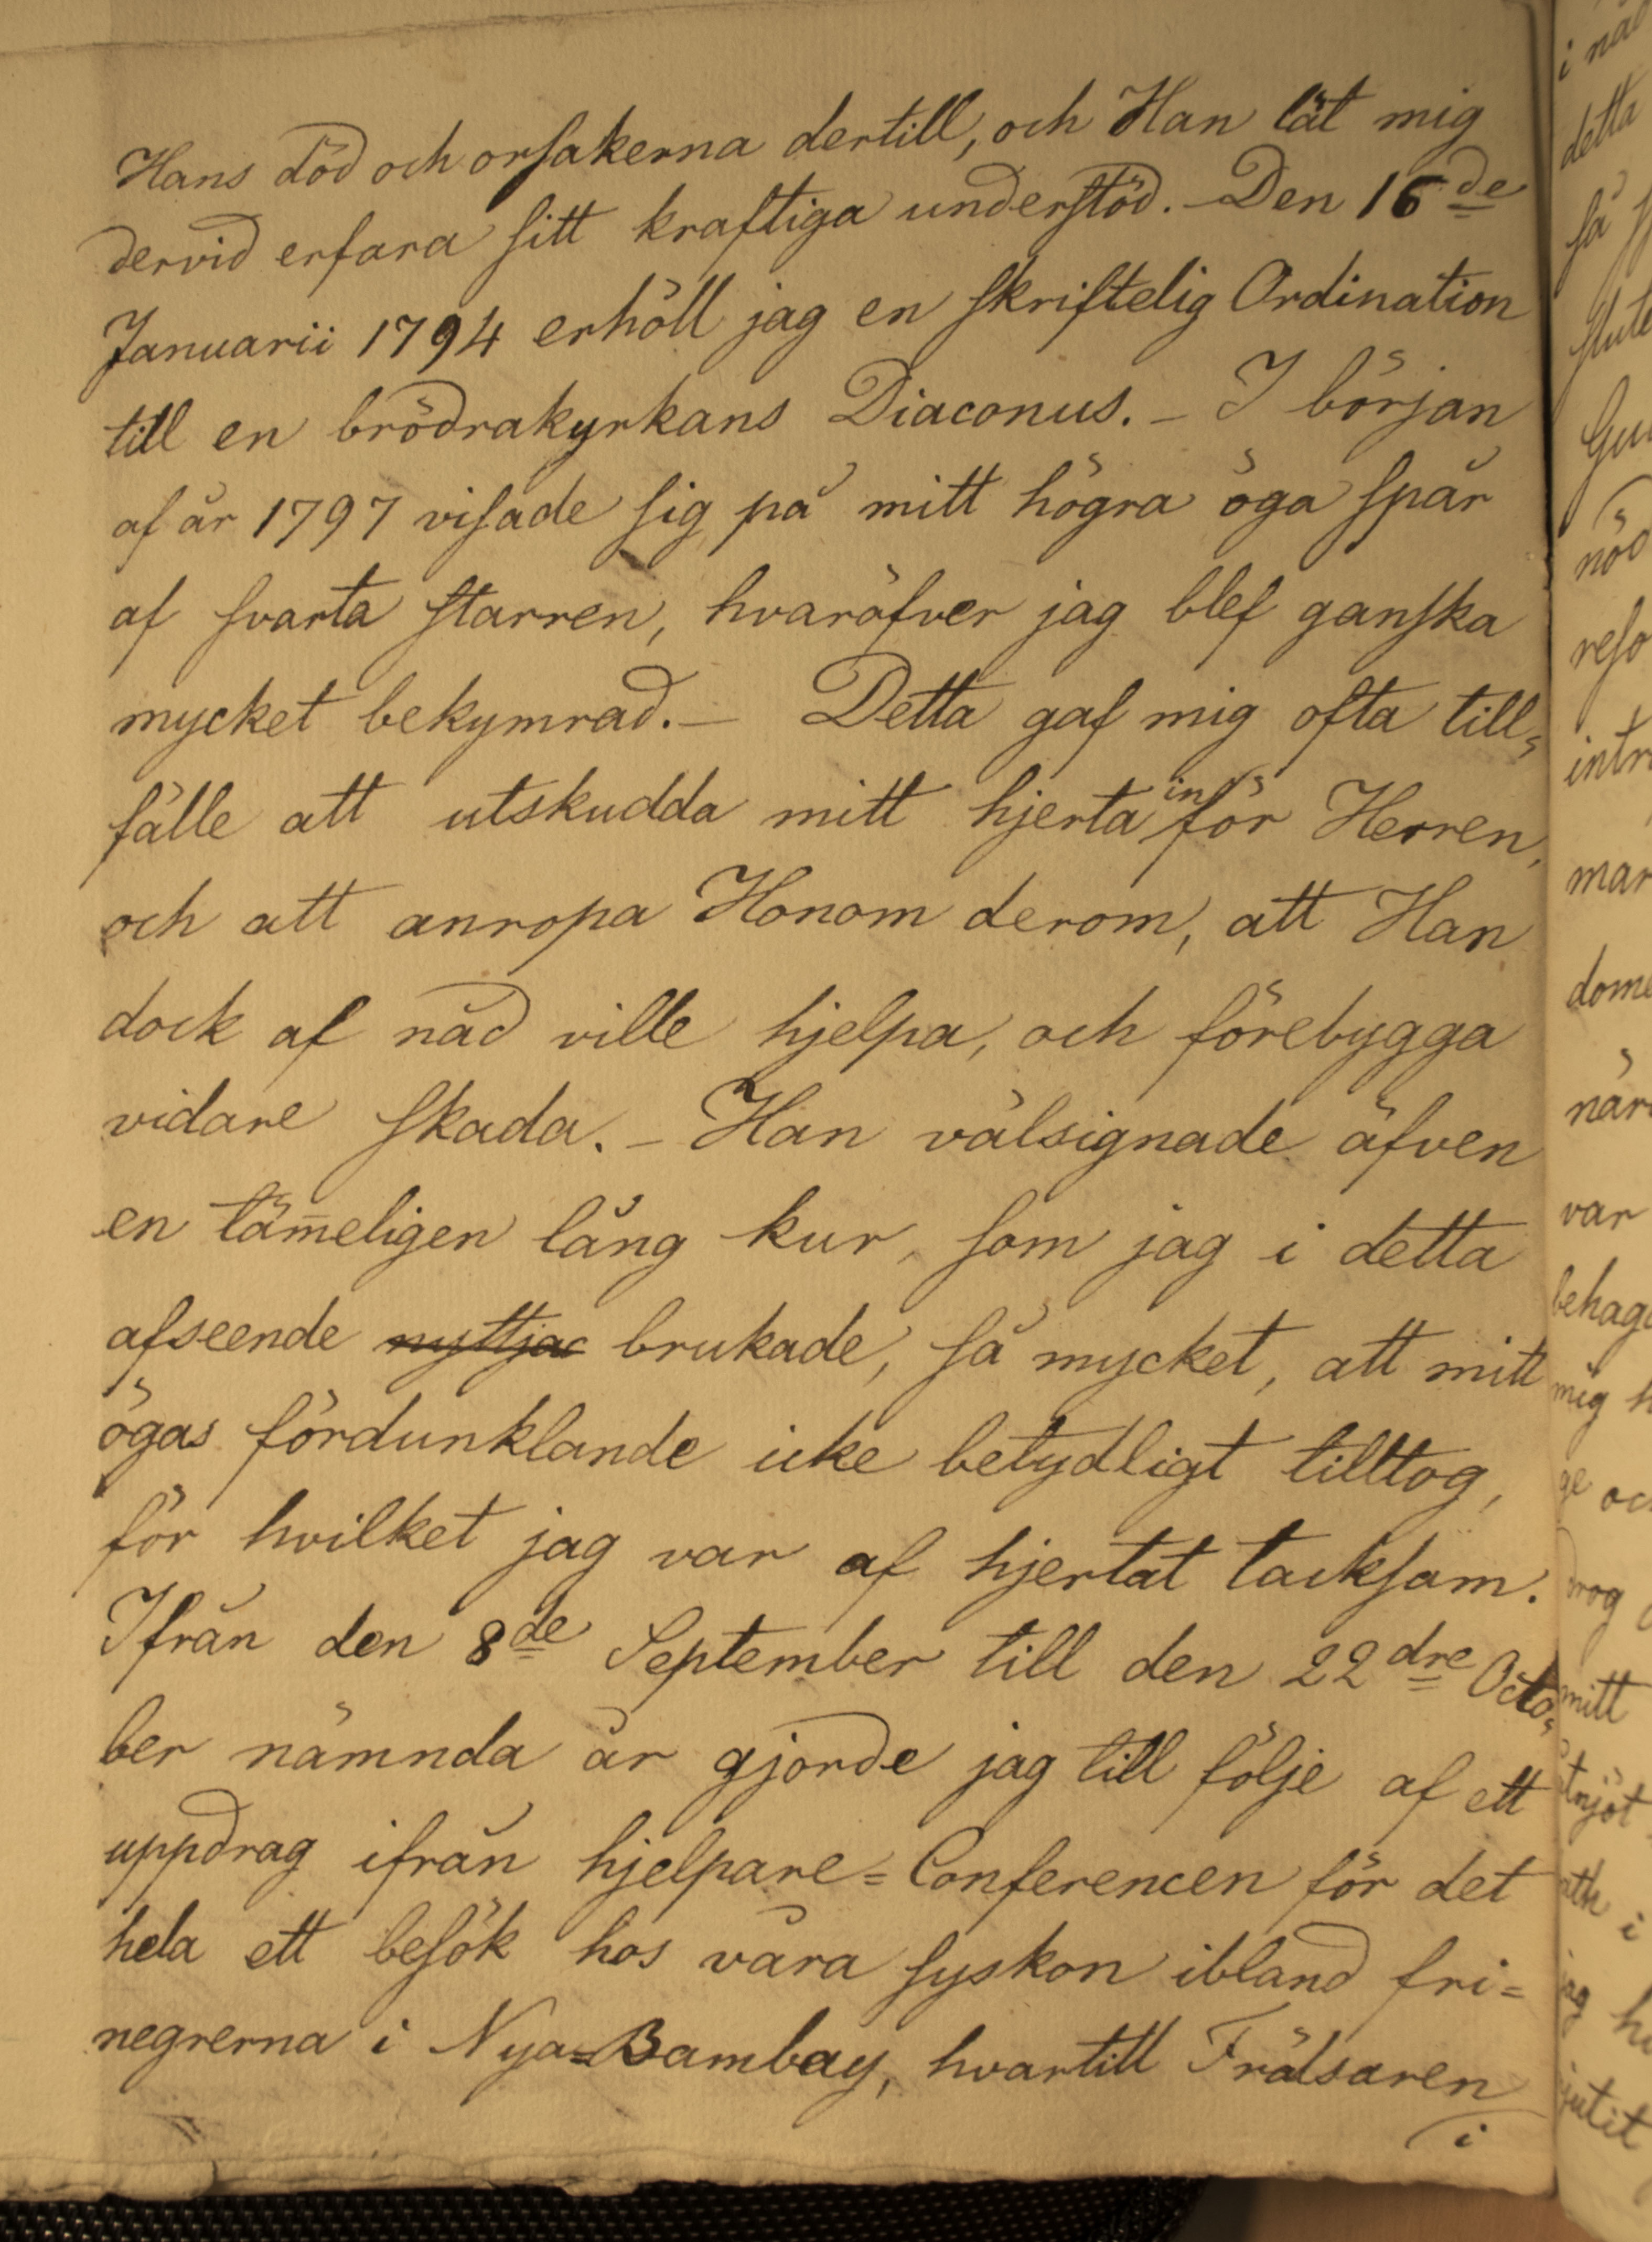 Hans död och orsakerna dertill, och Han lät mig
dervid erfara sitt kraftiga understöd. – Den 16de
Januarii 1794 erhöll jag en skriftelig Ordination
till en brödrakyrkans Diaconus. – I början
af år 1797 visade sig på mitt högra öga spår
af svarta starren, hvaröfver jag blef ganska
mycket bekymrad. – Detta gaf mig ofta till=
fälle att utskudda mitt hjerta inför Herren,
och att anropa Honom derom, att Han
dock af nåd ville hjelpa, och förebygga
vidare skada. – Han välsignade äfven
en täm̅eligen lång kur, som jag i detta
afseende nyttjac brukade, så mycket, att mitt
ögas fördunklande icke betydligt tilltog,
för hvilket jag var af hjertat tacksam.
Ifrån den 8de September till den 22dre Octo=
ber nämnda år gjorde jag till följe af ett
uppdrag ifrån hjelpare=Conferencen för det
hela ett besök hos våra syskon ibland fri=
negrerna i Nya=Bambay, hvartill Frälsaren
i
detta
så
mar
var
mig
mitt